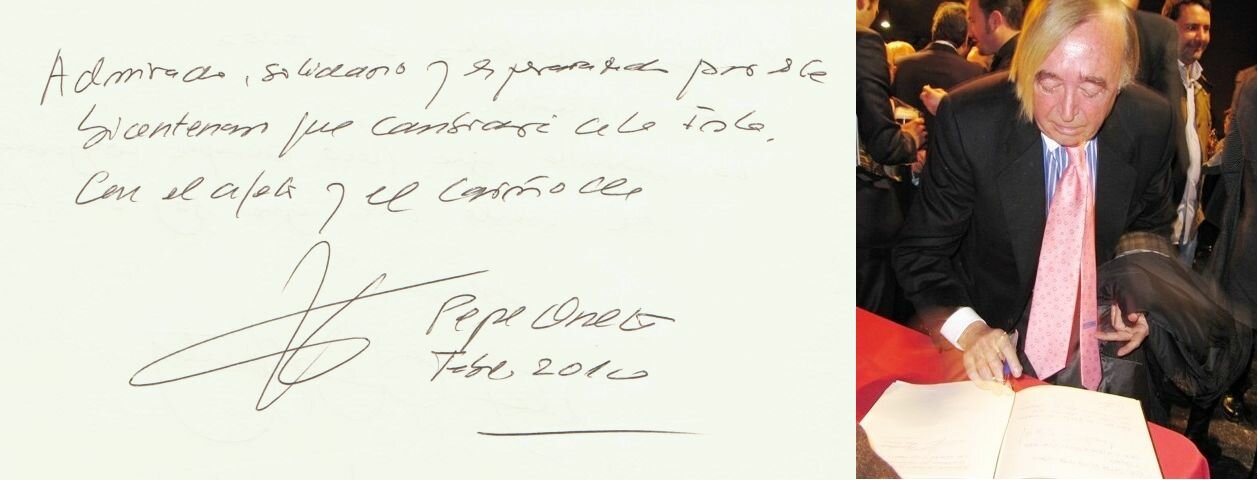 Admirado, solidario y esperanzado por este
bicentenario que cambiará a la Isla.
Con el afecto y el cariño de
Pepe Oneto
Febr 2010